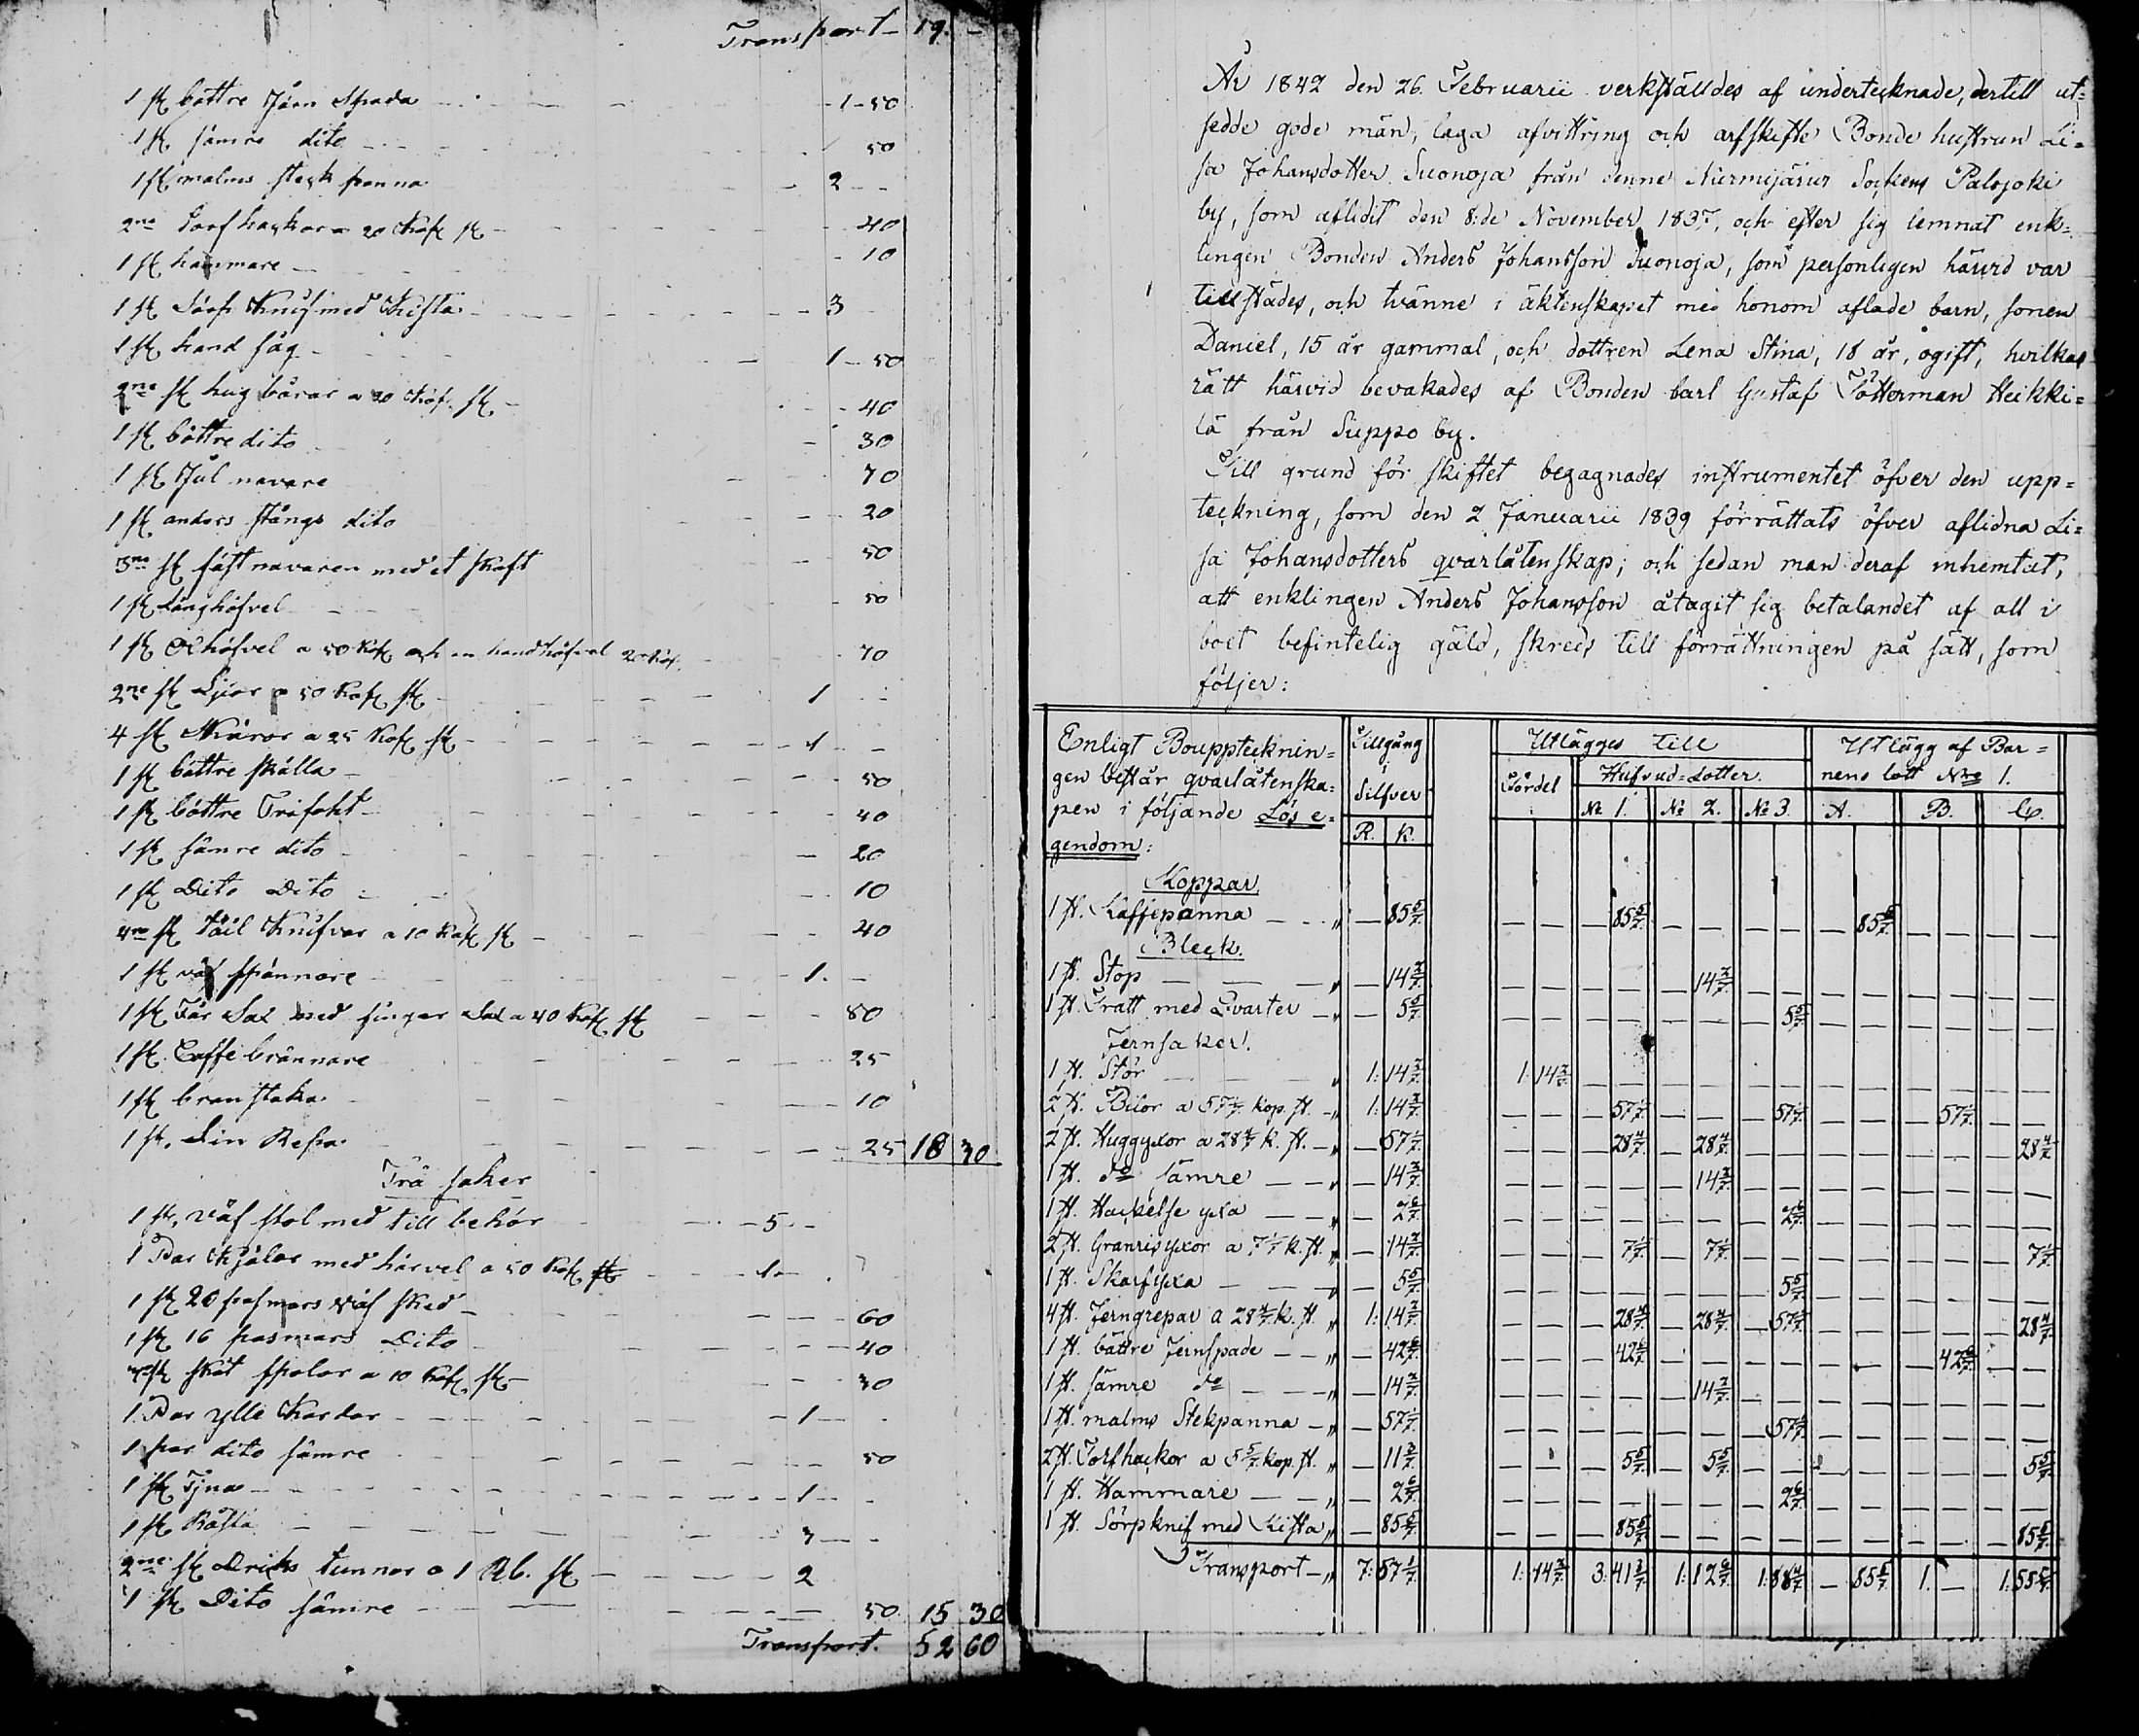 Transport – 19. –
1 st bättre Järn Spada – 1 – 50
1 st sämre dito – 50
1 st malms steck panna – 2 – –
2ne Torf hackor a 20 Kop st – 40
1 st hammare – 10
1 st Sörp Knif med Kista – 3
1 st hand såg – 1 – 50
2ne st hug bårar a 20 Kop. st – 40
1 st bättre dito – 30
1 st Jul navare 70
1 st anders stångs dito 20
3ne st fäst navaren med et skaft 50
1 st Långhöfvel 50
1 st Ok höfvel a 50 Kop och en handhöfvel 20 Kop. 70
2ne st Liar a 50 Kop st – 1 –
4 st Skäror a 25 Kop st – 1 –
1 st bättre skälla – 50
1 st bättre Trifokt 40
1 st sämre dito 20
1 st Dito Dito 10
4ra st täil Knifvar a 10 Kop st – 40
1 st väf spännare – 1. –
1 st Får Sax med finger Sax a 40 Kop st – 80
1 st Caffe brännare – 25
1 st branstaka – 10
1 st. Lin Repa – 25 18 30
Trä saker
1 st, väf stol med till behör – 5 –
1 Par Kjälar med härvel a 50 Kop st – 1 –
1 st 20 pasmars Väf sked – 60
1 st 16 pasmars Dito – 40
3 st skåt spolar a 10 Kop. st – 30
1 Par ylle Kardor – 1 –
1 par dito sämre 50
1 st Tjna – 1 –
1 st Råsla – 3 –
2ne st Driks tunnor a 1 Rb. st – 2
1 st Dito sämre – 50 15 30
Transport. 52 60
År 1842 den 26. Februarii verkställdes af undertecknade, dertill ut=
sedde gode män, laga afvittring och arfskifte Bonde hustrun Li=
sa Johansdotter Suonoja från denne Nurmijärvi Sockens Palojoki
by, som aflidit den 8:de November 1837, och efter sig lemnat enk=
lingen Bonden Anders Johansson Suonoja, som personligen härvid var
tillstädes, och tvänne i äktenskapet med honom aflade barn, sonen
Daniel, 15 år gammal, och dottren Lena Stina, 18 år, ogift, hvilkas
rätt härvid bevakades af Bonden Carl Gustaf Tötterman Heikki=
lä från Suppo by.
Till grund för skiftet begagnades instrumentet öfver den upp=
teckning, som den 2 Januarii 1839 förrättats öfver aflidna Li=
sa Johansdotters qvarlåtenskap; och sedan man deraf inhemtat,
att enklingen Anders Johansson åtagit sig betalandet af all i
boet befintelig gäld, skreds till förrättningen på sätt, som
följer:
Enligt Bouppteckнin= Tillgång Utlägges till Utlägg af Bar=
gen består qvarlåtenska= i Silfver Fördel Hufvud=Lotter. nens lott No 1.
pen i följande Lös e= R. K. No 1. No 2. No 3. A. B. C.
gendom:
Koppar.
1 st. Kaffepanna – „ – 85 5/7. – – – 85 5/7. – – – – – 85 5/7. – – – –
Bleck.
1 st. Stop – „ – 14 2/7. – – – – – 14 2/7. – – – – – – – –
1 st. Tratt med Qvarter – „ – 5 5/7. – – – – – – – 5 5/7. – – – – – –
Jernsaker.
1 st. Stör – „ 1: 14 2/7. 1: 14 2/7. – – – – – – – – – – – –
2 st. Bilor a 57 1/7. kop. st. – „ 1: 14 2/7. – – – 57 1/7. – – – 57 1/7. – – – 57 1/7. – –
2 st. Huggyxor a 28 4/7 k. st. – „ – 57 1/7. – – – 28 4/7. – 28 4/7. – – – – – – – 28 4/7.
1 st. do sämre – „ – 14 2/7. – – – – – 14 2/7. – – – – – – – –
1 st. Hackelse yxa – „ – 2 6/7. – – – – – – – 2 6/7. – – – – – –
2 st. Granrisyxor a 7 1/7 k. st. „ – 14 2/7. – – – 7 1/7. – 7 1/7. – – – – – – – 7 1/7.
1 st. Skarfyxa – „ – 5 5/7. – – – – – – – 5 5/7. – – – – – –
4 st. Jerngrepar a 28 4/7. k. st. „ 1: 14 2/7. – – – 28 4/7. – 28 4/7. – 57 1/7. – – – – – 28 4/7.
1 st. bättre Jernspade – „ – 42 6/7. – – – 42 6/7. – – – – – – – 42 6/7. – –
1 st. sämre do – „ – 14 2/7. – – – – – 14 2/7. – – – – – – – –
1 st. malms Stekpanna – „ – 57 1/7. – – – – – – – 57 1/7. – – – – – –
2 st. Torfhackor a 5 5/7. kop. st. „ – 11 3/7. – – – 5 5/7. – 5 5/7. – – – – – – – 5 5/7.
1 st. Hammare – „ – 2 6/7. – – – – – – – 2 6/7. – – – – – –
1 st. Sörpknif med Kista „ – 85 5/7. – – – 85 5/7. – – – – – – – – – 85 5/7.
Transport – „ 7: 57 1/7. 1: 14 2/7. 3: 41 3/7. 1: 12 6/7. 1: 88 4/7. – 85 5/7. 1. – 1: 55 5/7.